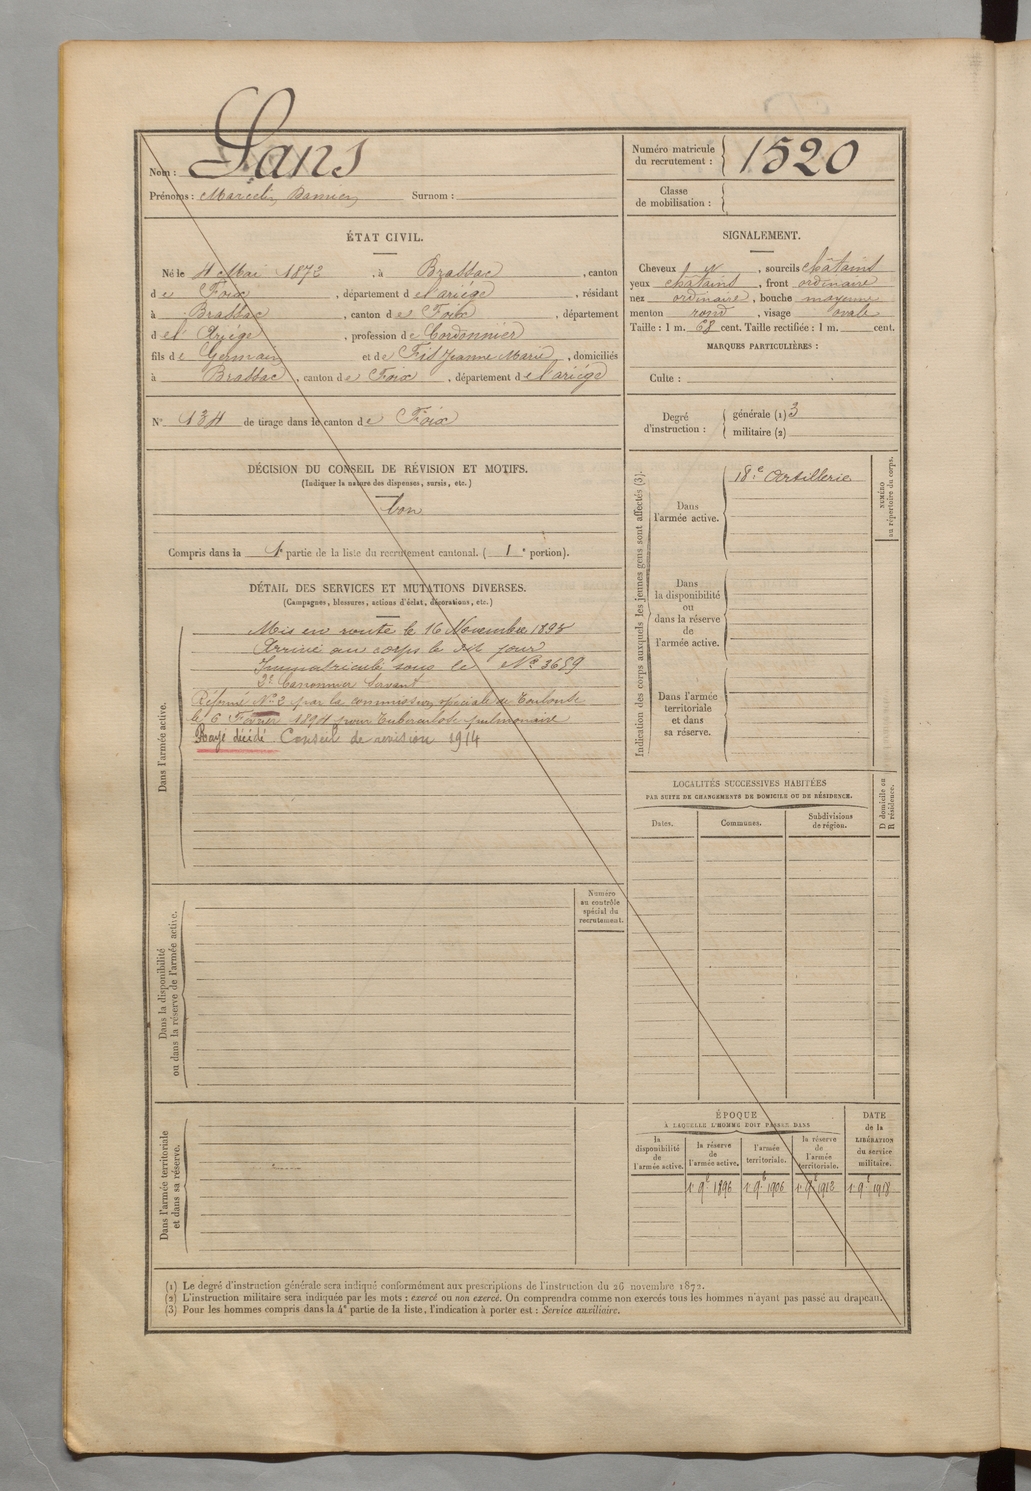 Nom : Sans
Prénoms : Marcelin Damien Surnom :
Numéro matricule du recrutement : 1520
Classe de mobilisation :
ÉTAT CIVIL.
Né le 4 Mai 1872, à Brassac, canton
de Foix, département de l'ariége, résidant
à Brassac, canton de Foix, département
de l'Ariége, profession de Cordonnier
fils de Germain et de Fis Jeanne Marie, domiciliés
à Brassac, canton de Foix, département de l'ariége
N° 134 de tirage dans le canton de Foix
SIGNALEMENT.
Cheveux, sourcils châtains
yeux châtains, front ordinaire
nez ordinaire, bouche moyenne
menton rond, visage ovale
Taille : 1 m. 68 cent. Taille rectifiée : 1 m. cent.
MARQUES PARTICULIÈRES :
Culte :
Degré d'instruction :
générale (1) 3
militaire (2)
DÉCISION DU CONSEIL DE RÉVISION ET MOTIFS.
(Indiquer la nature des dispenses, sursis, etc.)
bon
Compris dans la 1e partie de la liste du recrutement cantonal. ( 1 e portion).
DÉTAIL DES SERVICES ET MUTATIONS DIVERSES.
(Campagnes, blessures, actions d'éclat, décorations, etc.)
Dans l'armée active.
Mis en route le 16 Novembre 1893
Arrivé au corps le dit jour
Immatriculé sous le N° 3689
2e Canonnier Servant
Réformé N° 2 par la commission spéciale de Toulouse
le 6 Février 1894 pour Tuberculose pulmonaire
Rayé décédé Conseil de révision 1914
Dans la disponibilité ou dans la réserve de l'armée active.
Numéro au contrôle spécial du recrutement.
Dans l'armée territoriale et dans sa réserve.
Indication des corps auxquels les jeunes gens sont affectés (3).
Dans l'armée active.
18e Artillerie
NUMÉRO au répertoire du corps.
Dans la disponibilité ou dans la réserve de l'armée active.
Dans l'armée territoriale et dans sa réserve.
LOCALITÉS SUCCESSIVES HABITÉES
PAR SUITE DE CHANGEMENTS DE DOMICILE OU DE RÉSIDENCE.
Dates. Communes. Subdivisions de région.
D domicile ou R résidence.
ÉPOQUE
À LAQUELLE L'HOMME DOIT PASSER DANS
la disponibilité de l'armée active.
la réserve de l'armée active.
l'armée territoriale.
la réserve de l'armée territoriale.
DATE de la LIBÉRATION du service militaire.
1r 9e 1896 1r 9e 1906 1r 9e 1912 1r 9e 1918
(1) Le degré d'instruction générale sera indiqué conformément aux prescriptions de l'instruction du 26 novembre 1872.
(2) L'instruction militaire sera indiquée par les mots : exercé ou non exercé. On comprendra comme non exercés tous les hommes n'ayant pas passé au drapeau.
(3) Pour les hommes compris dans la 4e partie de la liste, l'indication à porter est : Service auxiliaire.